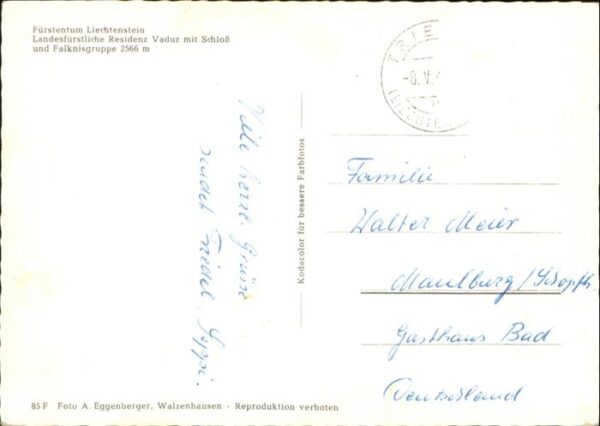 Fürstentum Liechtenstein
Landesfürstliche Residenz Vaduz mit Schloß
und Falknisgruppe 2566 m
TRIE
-8.V.
(LIECHTE
Viele Herzl. Grüsse
sendet Friedel, Seppi.
Kodacolor für bessere Farbfotos
Familie
Walter Meier
Maulburg/Schopfh.
Gasthaus Bad
Deutschland
85 F Foto A. Eggenberger, Walzenhausen - Reproduktion verboten